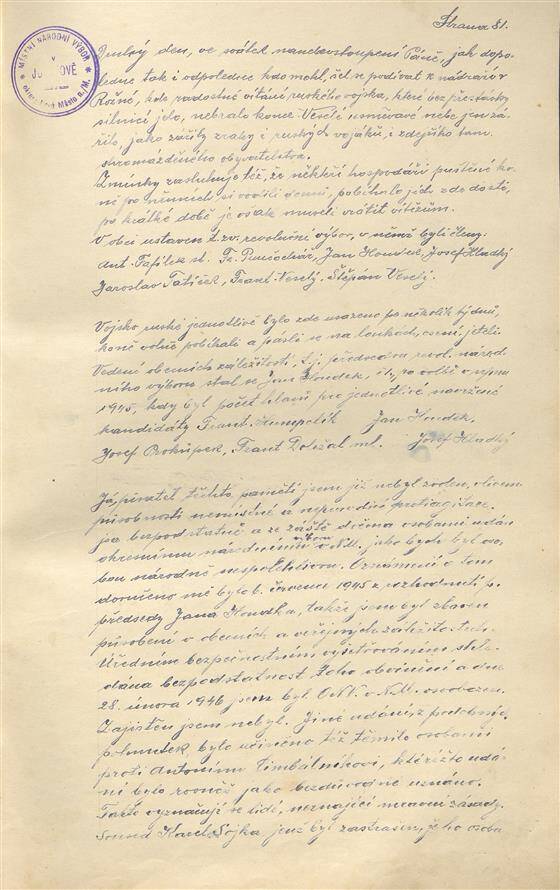 Strana 81.
MÍSTNÍ NÁRODNÍ VÝBOR
v
Druhý den, ve svátek nanebevstoupení Páně, jak dopo-
ledne tak i odpoledne kdo mohl, šel se podívat k nádraží v
Rožné, kde radostně vítáno ruské vojsko, které bez přestávky
silnicí jelo, nebralo konce. Veselé usměvavé nebe jen zá-
řilo, jako zářily zraky i ruských vojáků i zdejšího tam
shromážděného obyvatelstva.
Zmínky zasluhuje též, že někteří hospodáři puštěné ko-
ně po němcích si vodili domů, pobíhalo jich zde dosti,
po krátké době je však museli vrátit vítězům.
V obci ustaven t.zv. revoluční výbor, v němž byli členy:
Ant. st. Fr. Jan Houdek, Josef Hladký
Jaroslav Tatíček, Frant. Veselý, Štěpán Veselý.
Vojsko ruské jednotlivě bylo zde usazeno po několik týdnů,
koně volně pobíhali a pásli se na loukách, osení, jeteli.
Vedení obecních záležitostí, t.j. předsedou revol. národ-
ního výboru stal se Jan Houdek, i po volbě v říjnu
1945, kdy byl počet hlasů pro jednotlivé navržené
kandidáty: Frant. Humpolík Jan Houdek.
Josef Prokůpek, Frant. Doležal ml. Josef Hladký
Já, pisatel těchto pamětí jsem již nebyl zvolen, vlivem
působnosti nemístné a protiagitace.
jsa bezpodstatně a ze záště dvěma osobami udán
okresnímu národnímu výboru v N.M. jako bych byl oso-
bou národně nespolehlivou. Oznámení o tom
doručeno mě bylo 6. července 1945 z rozhodnutí p.
předsedy Jana Houdka, takže jsem byl zbaven
působení v obecních a veřejných záležitostech.
Úředním bezpečnostním vyšetřováním shle-
dána bezpodstatnost toho obvinění a dne
28. února 1946 jsem byl O.N.V. v N.M. osvobozen.
Zajištěn jsem nebyl. Jiné udání, z podobných
pohnutek, bylo učiněno též těmito osobami
proti Antonínu Cimbálníkovi, kteréžto udá-
ní bylo rovněž jako bezdůvodné uznáno.
Takto vyznačují se lidé, neznající mravní zásady.
Soused Karel Sojka, jenž byl zastrašen, že ho osoba